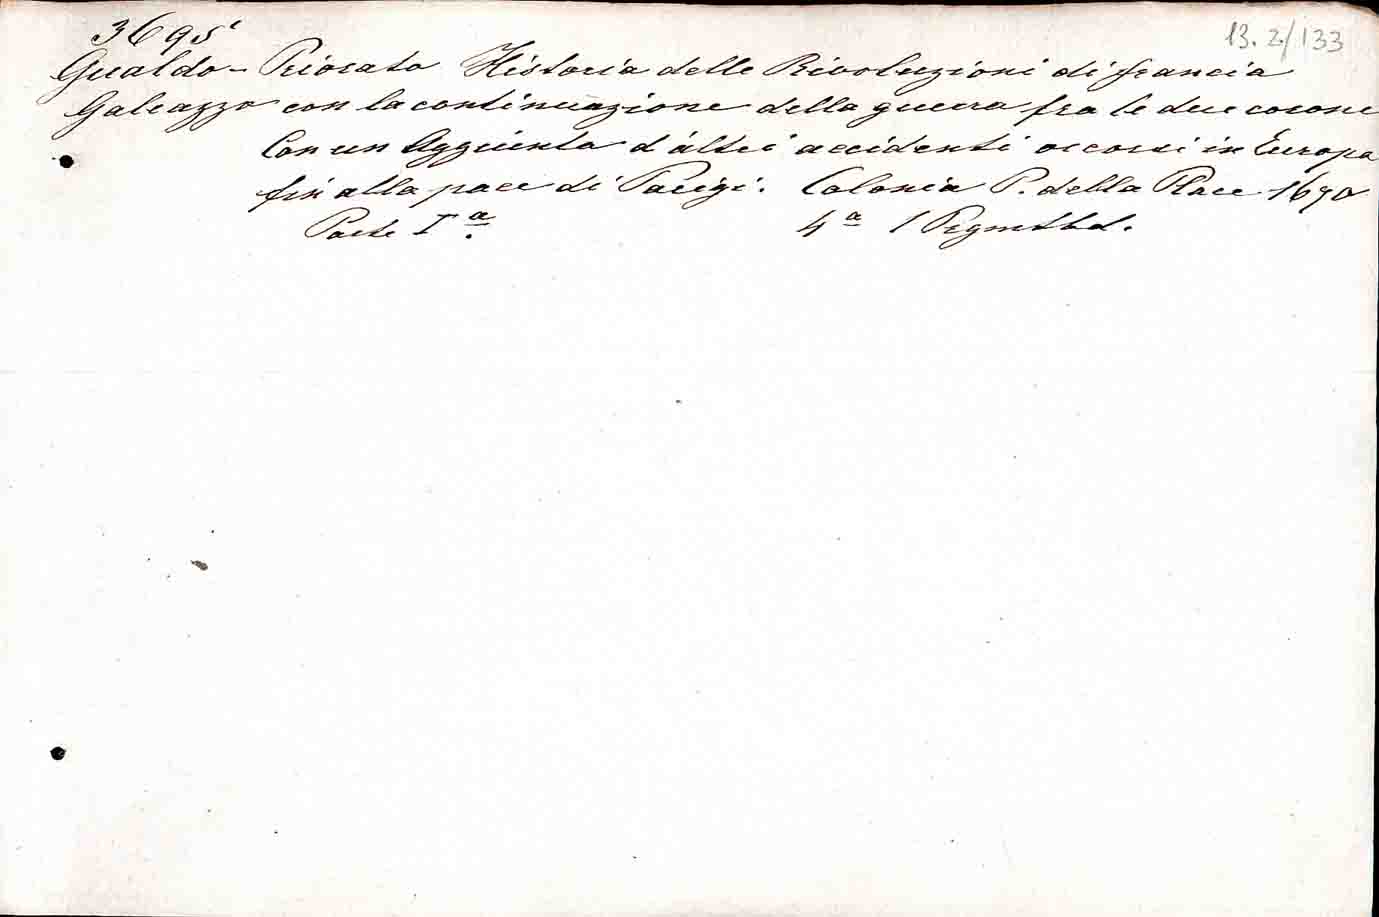 3695
13.2/133
Gualdo - Priorato Historia delle Rivoluzioni di francia
Galeazzo con la continuazione della guerra fra le due corone
Con un Aggiunta d'altri accidenti occorsi in Europa
fin alla pace di Parigi. Colonia P. della Place 1670
Parte Iª. 4ª 1 Pgmtbd.